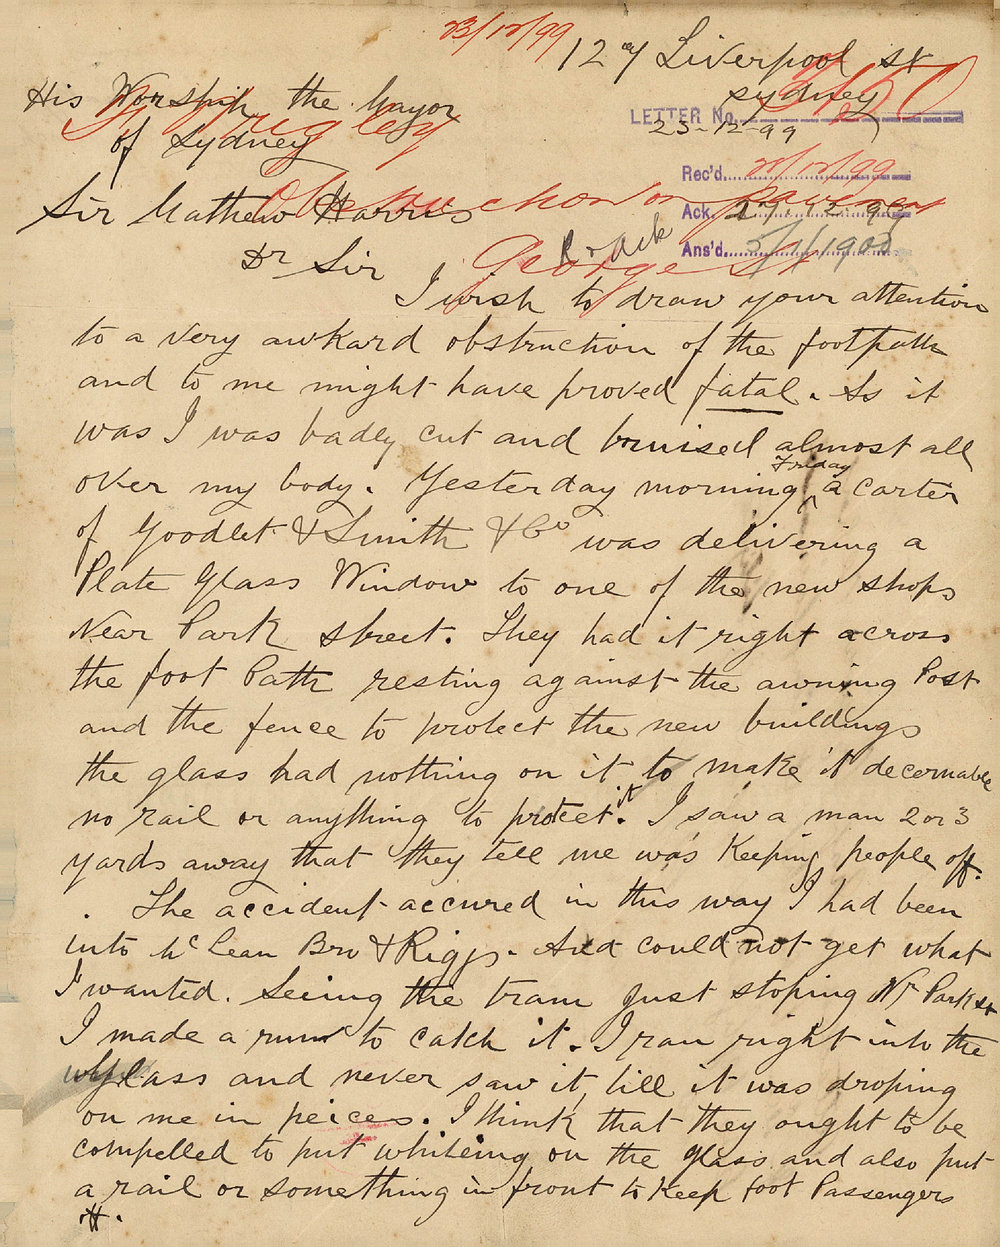 23/12/99
127 Liverpool St
Sydney
23-12-99
His Worship the Mayor
of Sydney
LETTER No.
Rec'd.
Ack.
Ans'd. 5/1/1900
Obstruction on pavement
George St
& Ack
Sir Mathew Harris
Dr Sir
I wish to draw your attention
to a very awkard obstruction of the footpath
and to me might have proved fatal. As it
was I was badly cut and bruised almost all
over my body. Yesterday morning Friday a carter
of Goodlet & Smith & Co was delivering a
Plate Glass Window to one of the new shops
Near Park Street. They had it right across
the foot Path resting against the awning Post
and the fence to protect the new buildings
the glass had nothing on it to make it decernable
no rail or anything to protect it. I saw a man 2 or 3
yards away that they tell me was Keeping people off.
The accident accured in this way I had been
into McLean Bro & Riggs. And could not get what
I wanted. Seeing the tram just stoping Nr Park St
I made a run to catch it. I ran right into the
Glass and never saw it till it was droping
on me in peices. I think that they ought to be
compelled to put whiteing on the glass and also put
a rail or something in front to Keep foot Passengers
off.